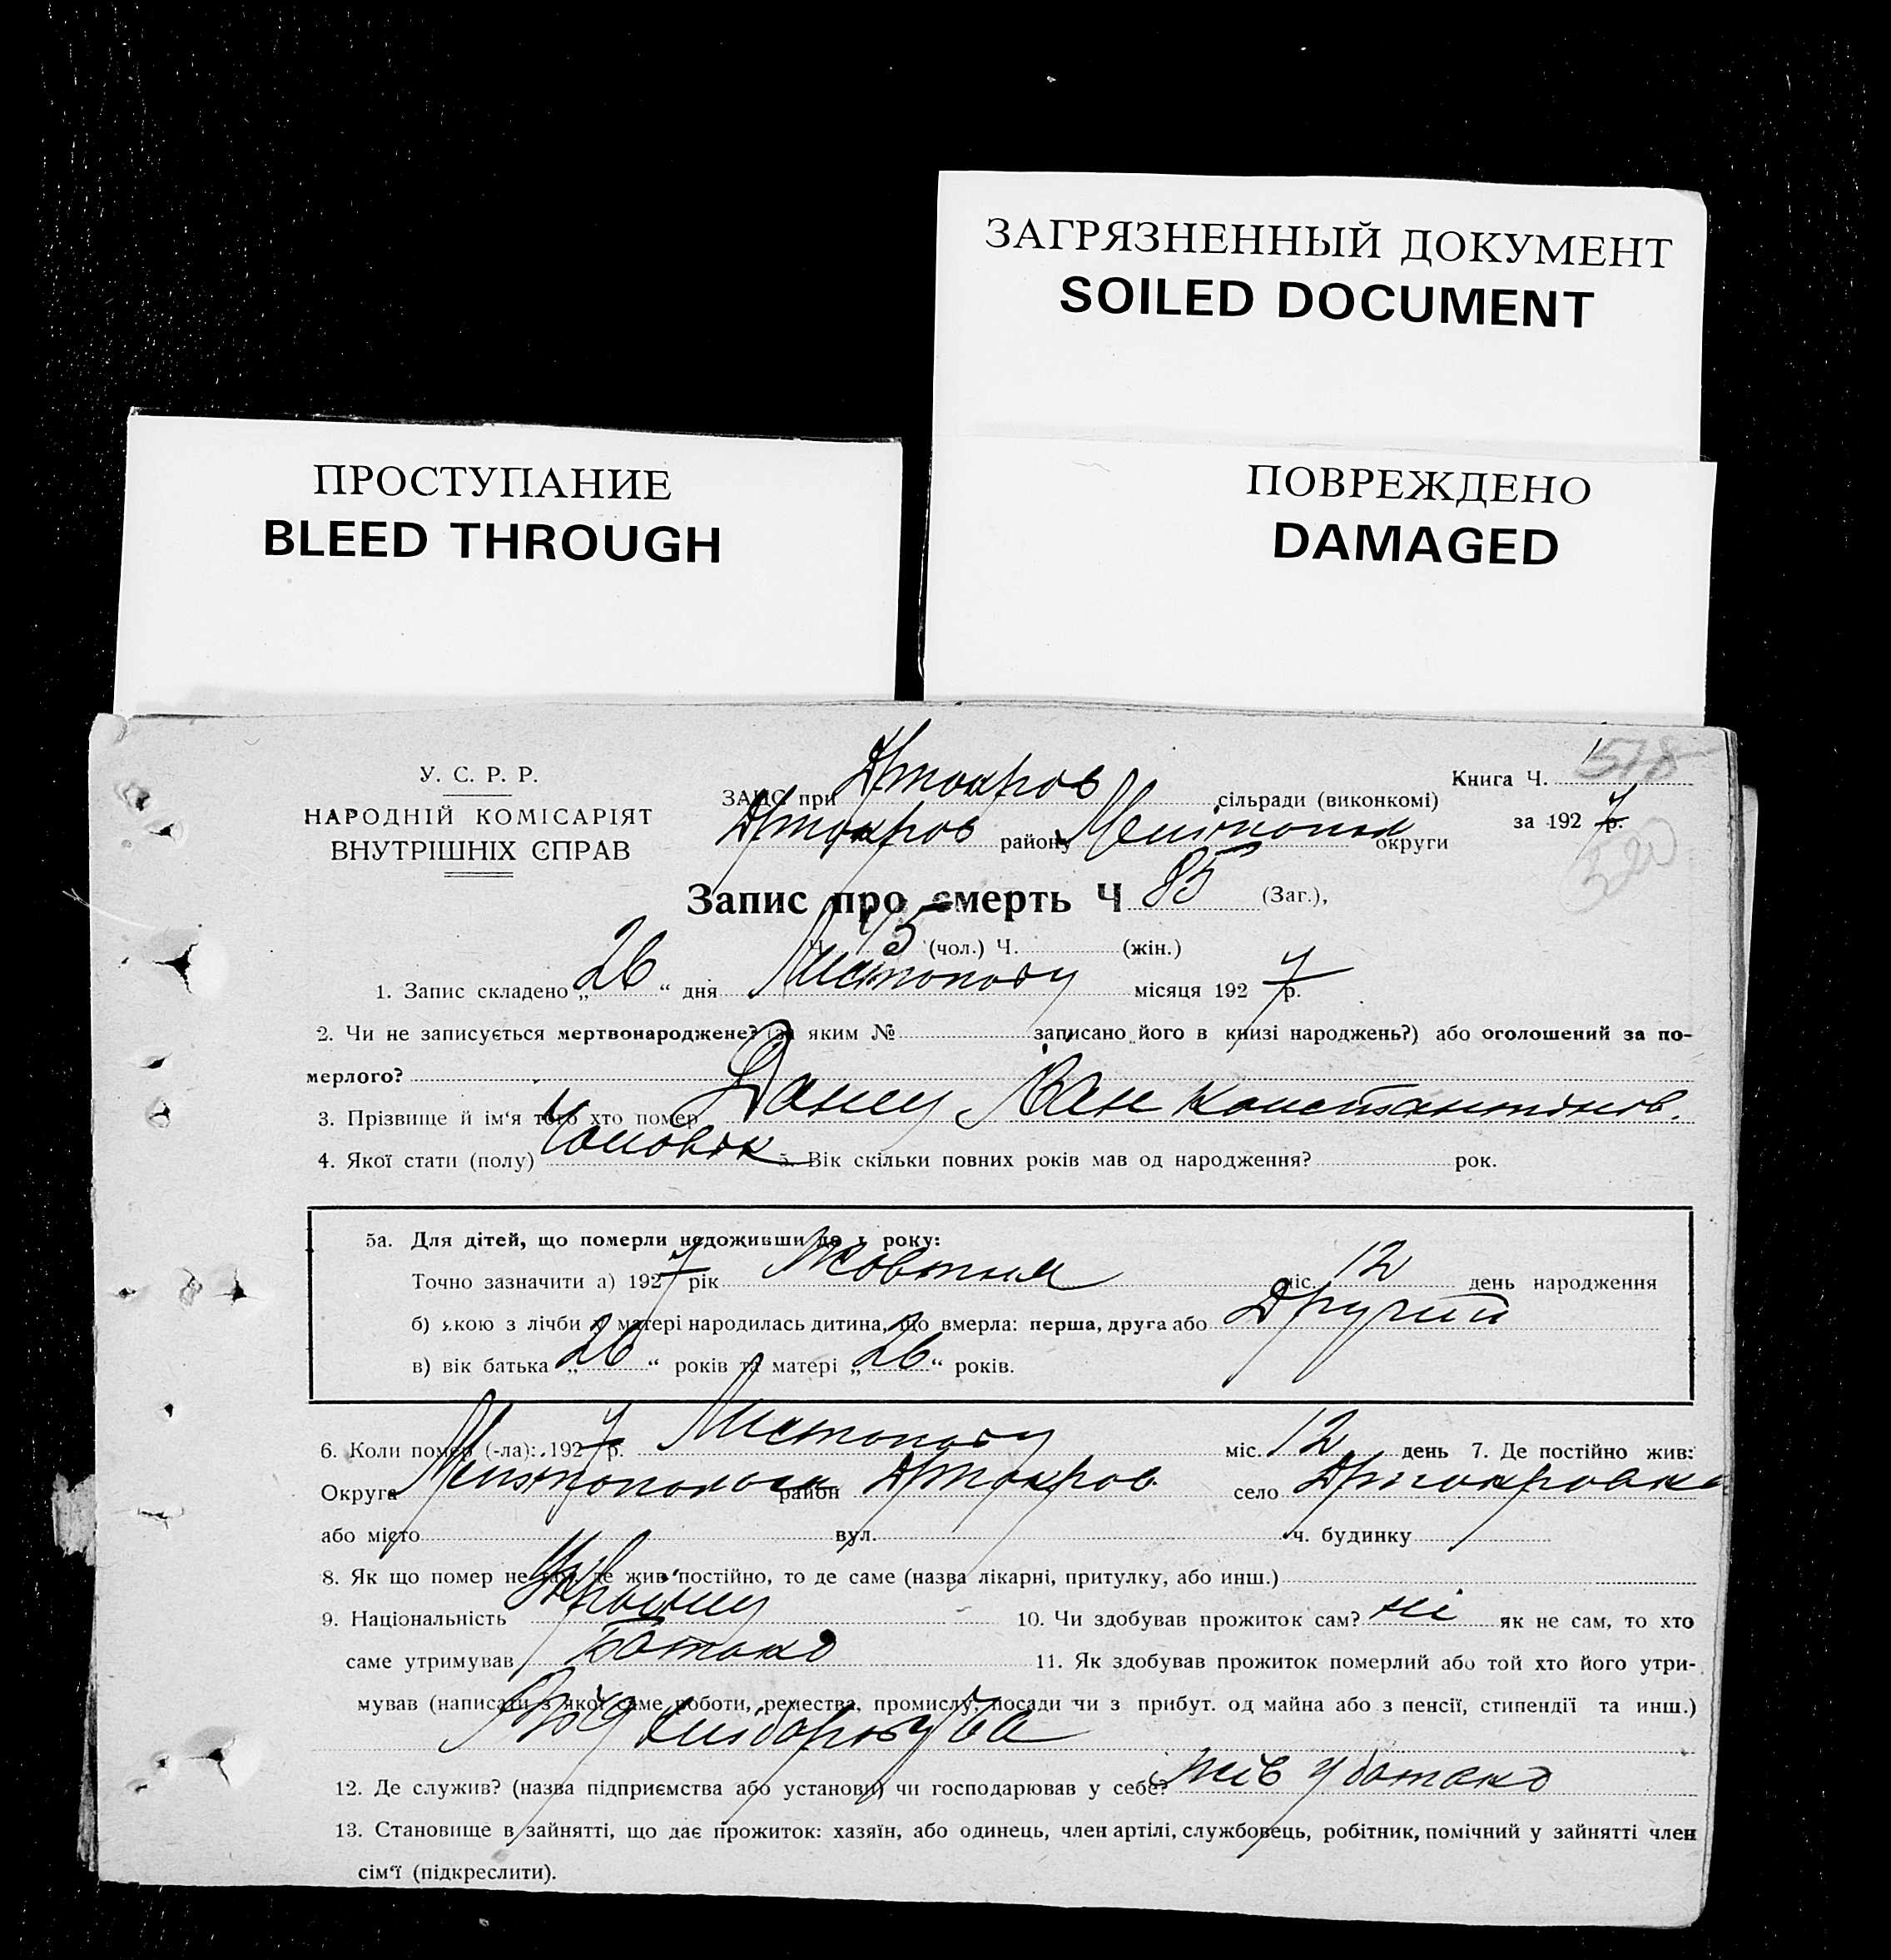 ЗАГРЯЗНЕННЫЙ ДОКУМЕНТ
SOILED DOCUMENT
ПРОСТУПАНИЕ
BLEED THROUGH
ПОВРЕЖДЕНО
DAMAGED
У. С. Р. Р.
НАРОДНІЙ КОМІСАРІЯТ
ВНУТРІШНІХ СПРАВ
ЗАПС при Дмокров сільради (виконкомі)
Дмокров району Мелітопол округи
Книга Ч. 518
за 1927 р.
520
Запис про смерть Ч 85 (Заг.),
Ч. 45 (чол.) Ч. (жін.)
1. Запис складено „26“ дня Листопаду місяця 1927 р.
2. Чи не записується мертвонароджене? (за яким № записано його в книзі народжень?) або оголошений за по-
мерлого?
3. Прізвище й ім'я того хто помер Іван Константинов.
4. Якої стати (полу) Чоловік 5. Вік скільки повних років мав од народження? рок.
5а. Для дітей, що померли недоживши до 1 року:
Точно зазначити а) 1927 рік Жовтня міс. 12 день народження
б) якою з лічби у матері народилась дитина, що вмерла: перша, друга або Другий
в) вік батька „26“ років та матері „26“ років.
6. Коли помер (-ла): 1927 р. Листопаду міс. 12 день 7. Де постійно жив:
Округа район Дмокров село Дмокровка
або місто вул. ч. будинку
8. Як що помер не там, де жив постійно, то де саме (назва лікарні, притулку, або инш.)
9. Національність 10. Чи здобував прожиток сам? ні як не сам, то хто
саме утримував Батько 11. Як здобував прожиток померлий або той хто його утри-
мував (написати з якої саме роботи, ремества, промислу, посади чи з прибут. од майна або з пенсії, стипендії та инш.)
12. Де служив? (назва підприємства або установи) чи господарював у себе? жів у батько
13. Становище в зайнятті, що дає прожиток: хазяїн, або одинець, член артілі, службовець, робітник, помічний у зайнятті член
сім'ї (підкреслити).